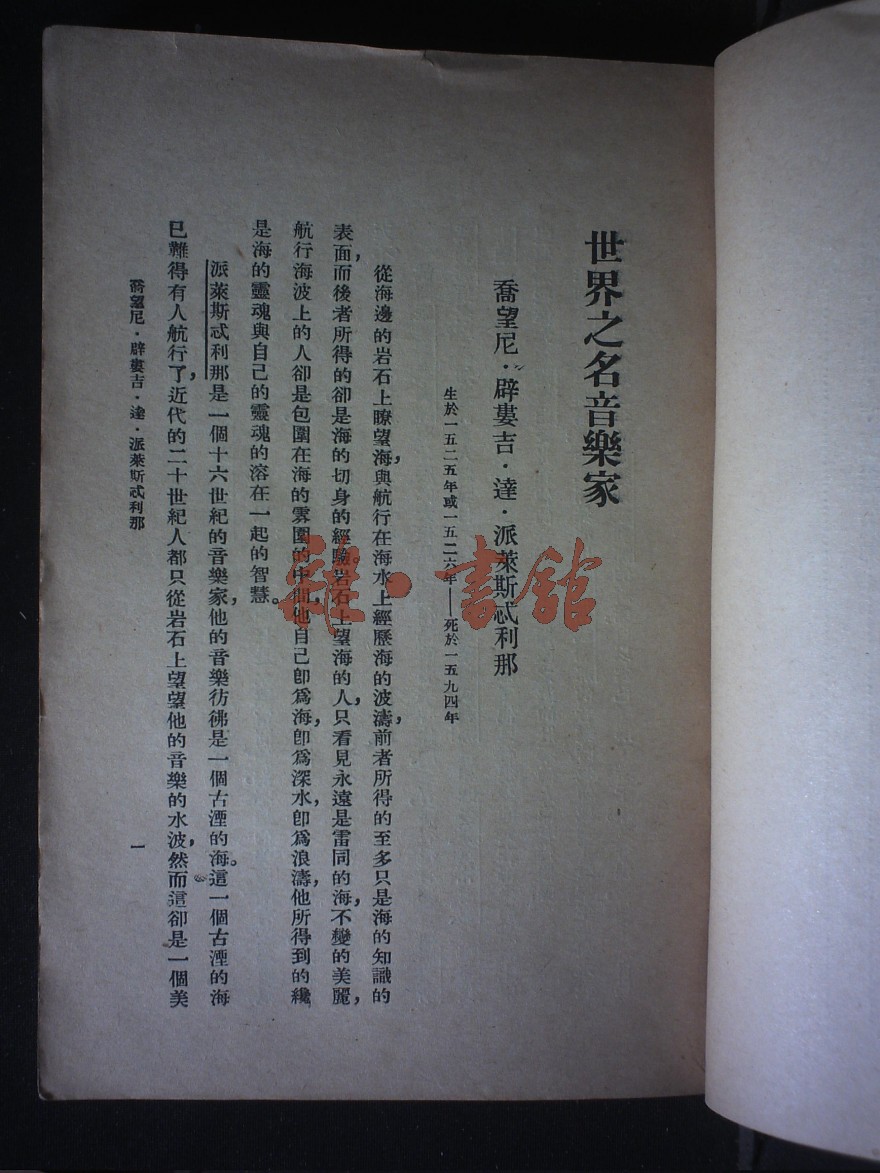 世界之名音樂家
喬望尼·辟婁吉·達·派萊斯忒利那
生於一五二五年或一五二六年——死於一五九四年
從海邊的岩石上瞭望海，與航行在海水上經歷海的波濤，前者所得的至多只是海的知識的
表面，而後者所得的卻是海的切身的經驗。岩石上望海的人，只看見永遠是雷同的海，不變的美麗，
航行海波上的人卻是包圍在海的雰圍的中間，他自己卽爲海，卽爲深水，卽爲浪濤，他所得到的纔
是海的靈魂與自己的靈魂的溶在一起的智慧。
派萊斯忒利那是一個十六世紀的音樂家，他的音樂彷彿是一個古湮的海。這一個古湮的海
已難得有人航行了，近代的二十世紀人都只從岩石上望望他的音樂的水波，然而這卻是一個美
喬望尼·辟婁吉·達·派萊斯忒利那
一
雜·書館